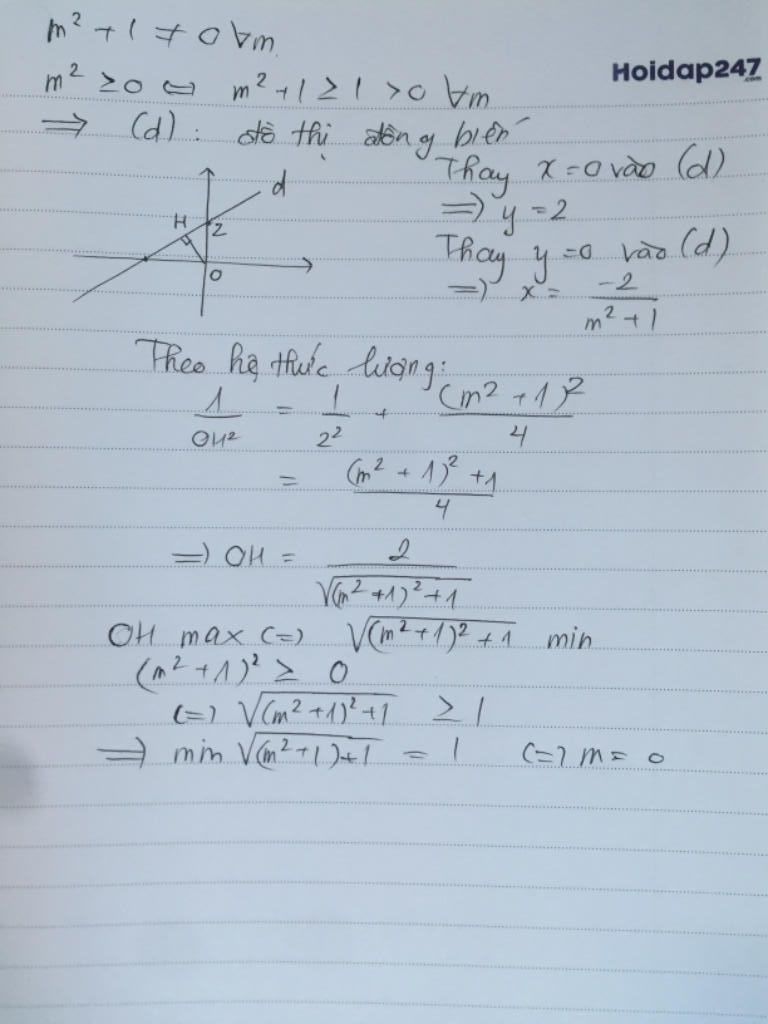 m² + 1 ≠ 0 ∀m
Hoidap247.com
m² ≥ 0 ⇔ m² + 1 ≥ 1 > 0 ∀m
⇒ (d): đồ thị đồng biến
Thay x = 0 vào (d)
⇒ y = 2
Thay y = 0 vào (d)
⇒ x = -2/(m² + 1)
d
H
2
O
Theo hệ thức lượng:
1/OH² = 1/2² + (m² + 1)²/4
= ((m² + 1)² + 1)/4
⇒ OH = 2/√((m² + 1)² + 1)
OH max ⇔ √((m² + 1)² + 1) min
(m² + 1)² ≥ 0
⇔ √((m² + 1)² + 1) ≥ 1
⇒ min √((m² + 1) + 1) = 1 ⇔ m = 0